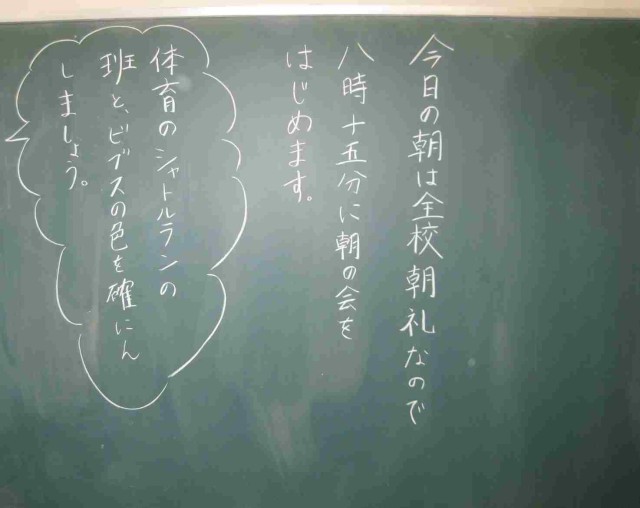 今日の朝は全校朝礼なので
八時十五分に朝の会を
はじめます。
体育のシャトルランの
班と、ビブスの色を確にん
しましょう。